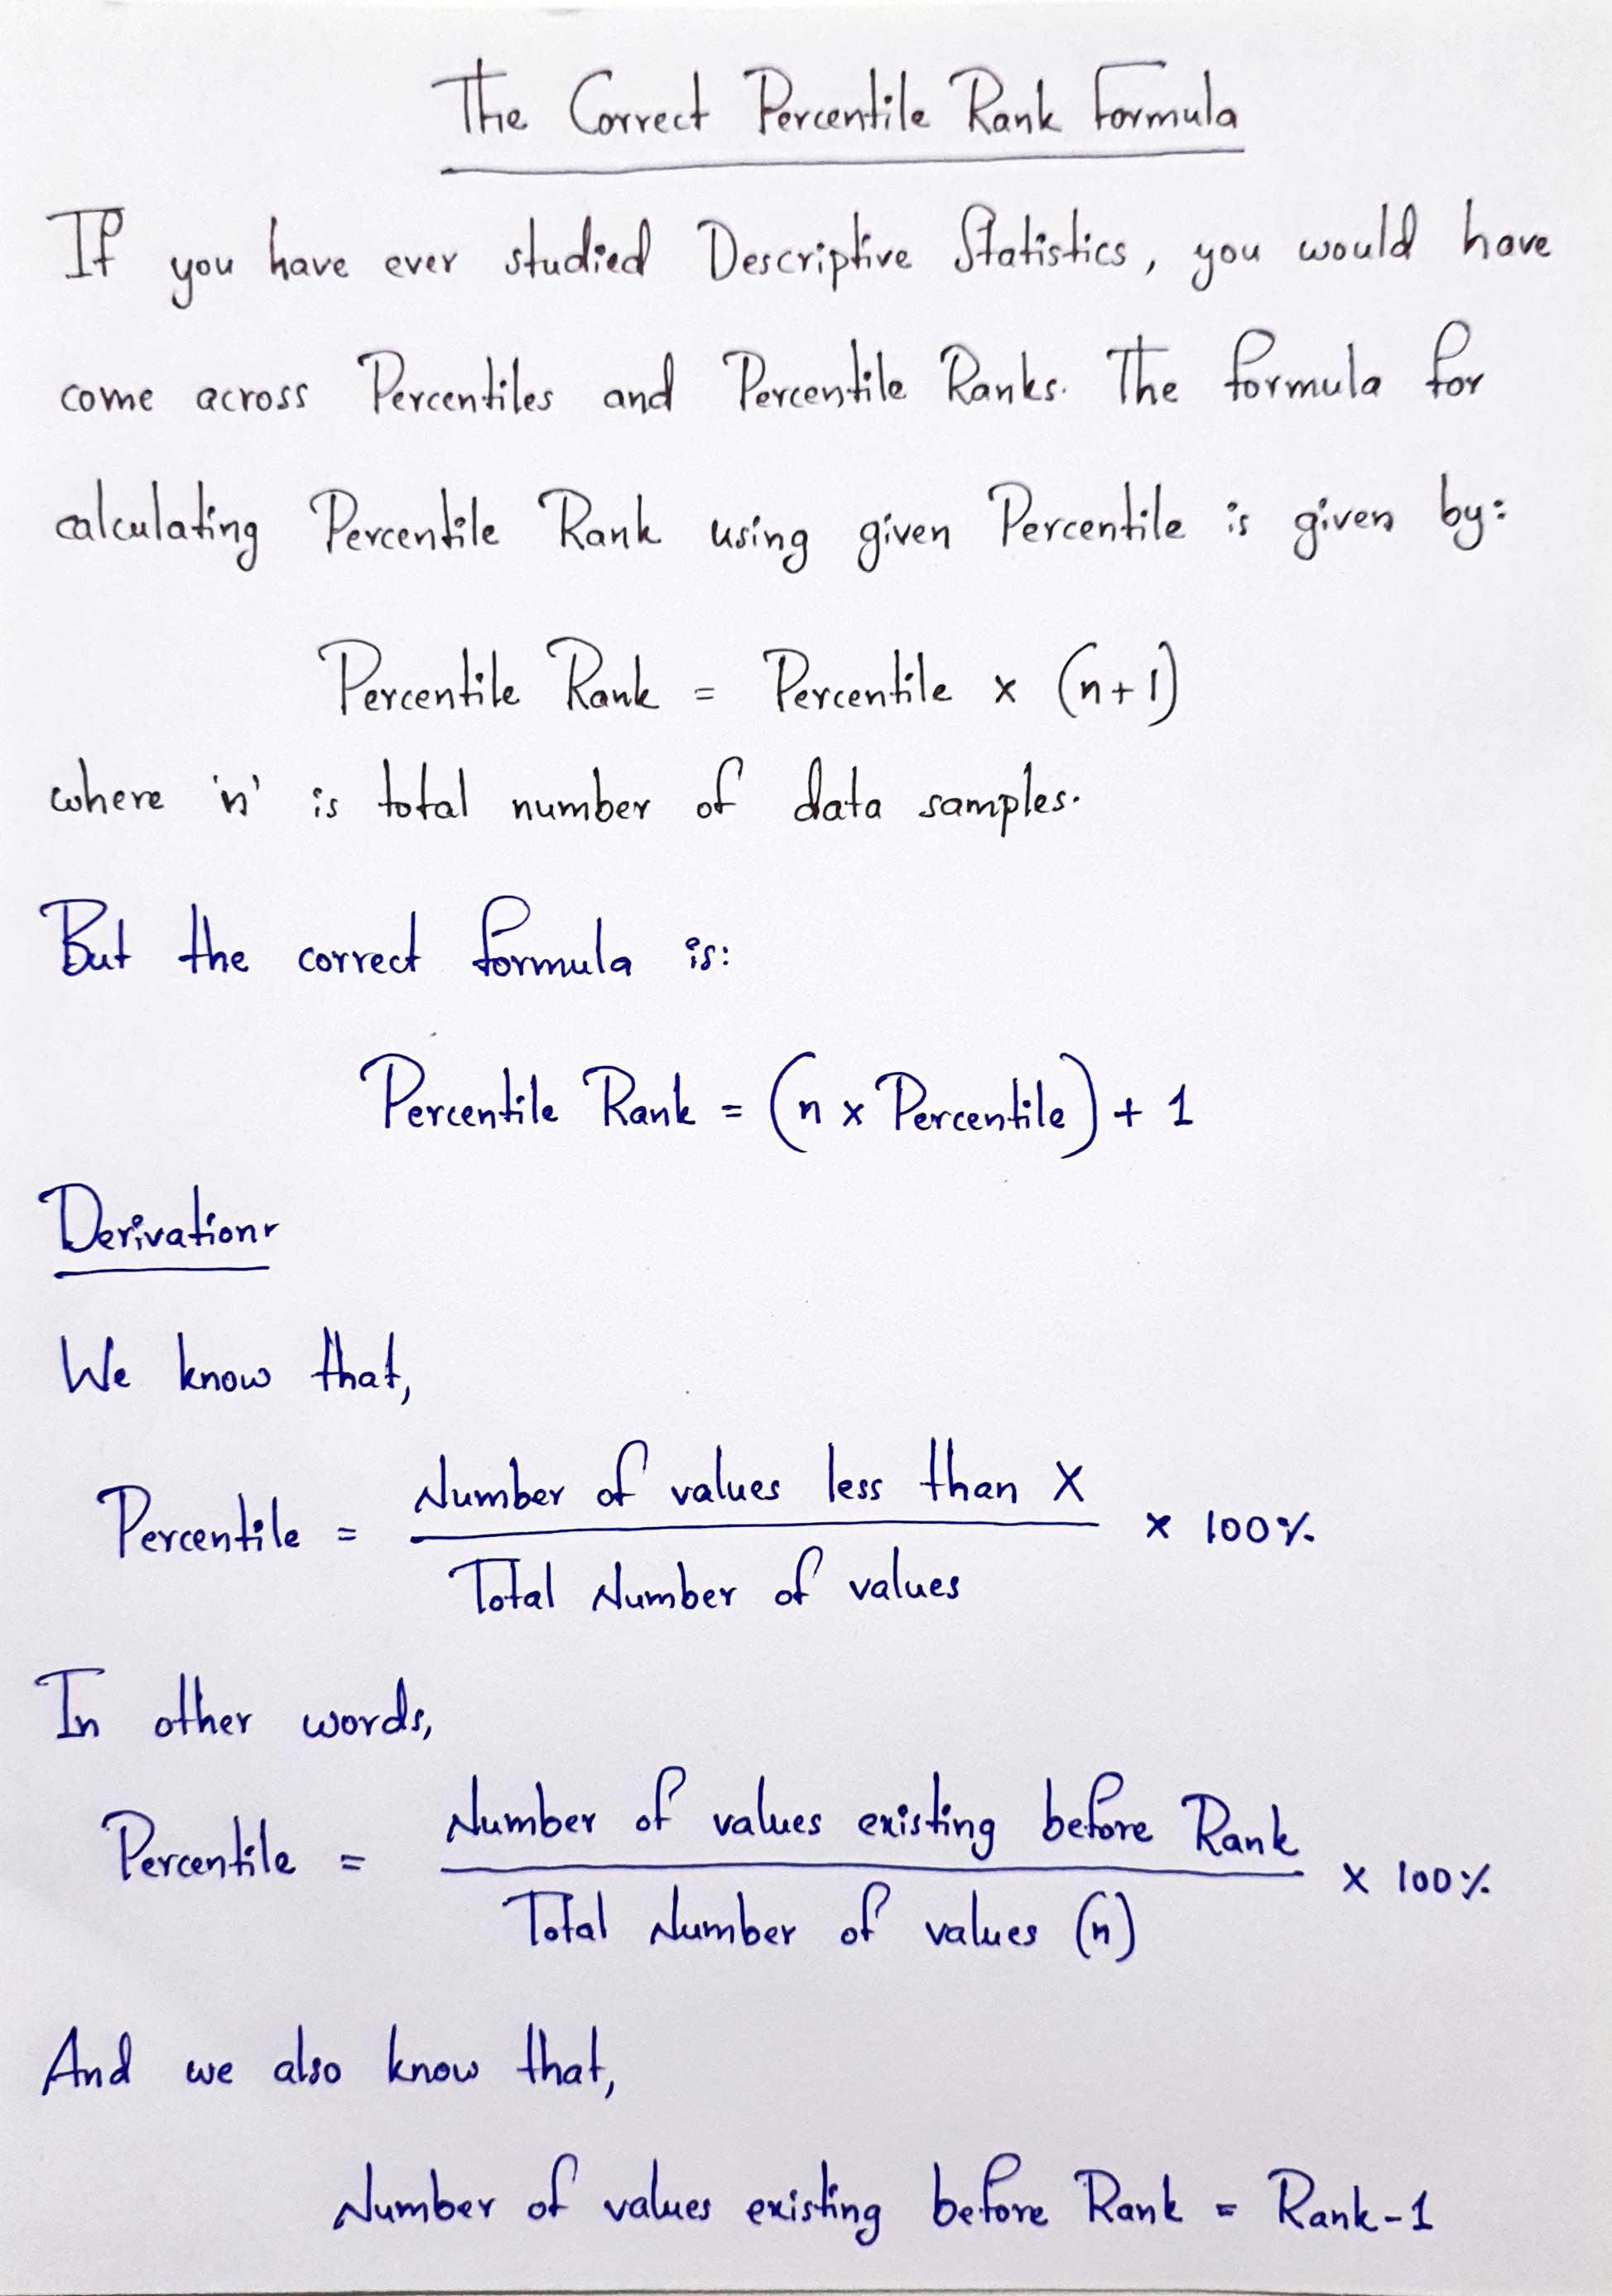 The Correct Percentile Rank Formula
If you have ever studied Descriptive Statistics, you would have
come across Percentiles and Percentile Ranks. The formula for
calculating Percentile Rank using given Percentile is given by:
Percentile Rank = Percentile × (n+1)
where 'n' is total number of data samples.
But the correct formula is:
Percentile Rank = (n × Percentile) + 1
Derivation:-
We know that,
Percentile = Number of values less than X / Total Number of values × 100%
In other words,
Percentile = Number of values existing before Rank / Total Number of values (n) × 100%
And we also know that,
Number of values existing before Rank = Rank-1